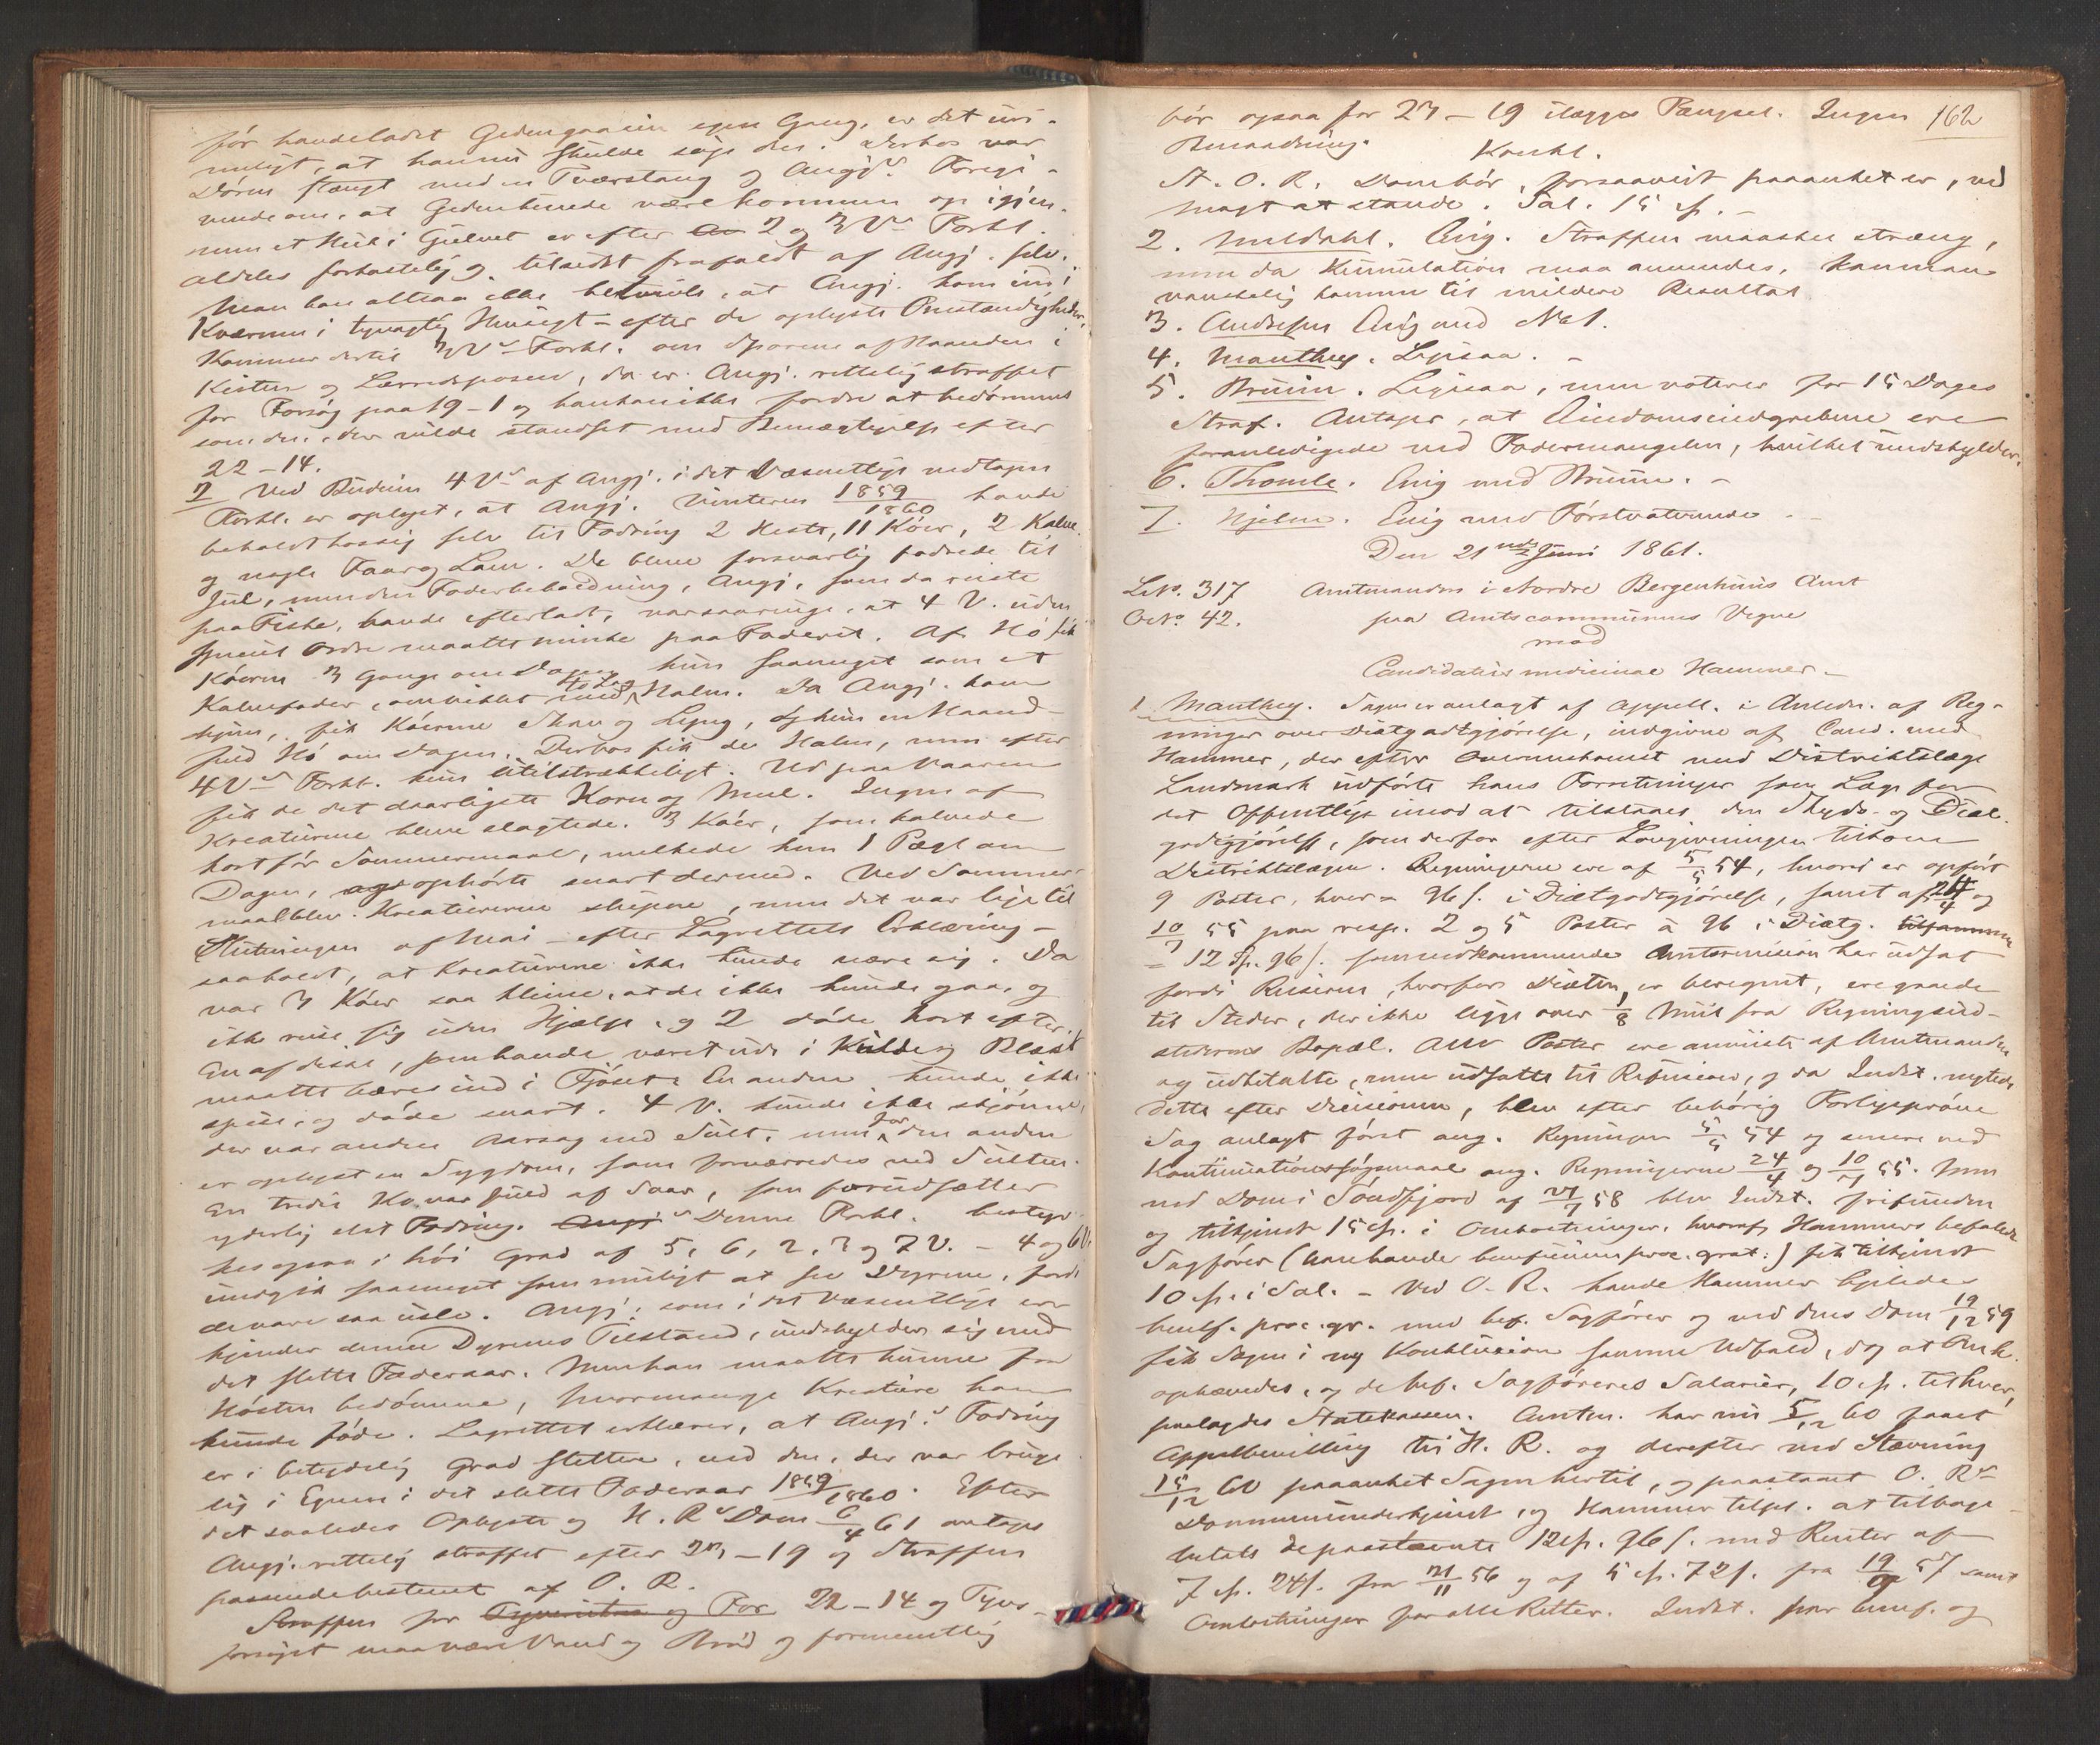 før havde ladt Geden gaa sin egen Gang, er det uri-
meligt, at han nu skulde søge den. Derhos var
Døren stængt med en Tværstang og Angj.s Foregi-
vende om, at Geden kunde være kommen op igjen-
nem et Hul i Gulvet er efter 2 og 3 V.s Forkl.
aldeles forkastelig og tilsidst frafaldt af Angj. selv.
Man kan altsaa ikke betvivle, at Angj. kom ind i
Kværnen i tyvagtig Hensigt – efter de oplyste Omstændigheder.
Kommer dertil 3 V.s Forkl. om Sporene af Haanden i
Kisten og Lærredsposen, da er Angj. rettelig straffet
for Forsøg paa 19-1 og han kan ikke fordre at bedømmes
som den, der vilde standset med Bemægtigelse efter
22-14.
2 Ved Buderen 4 V.s af Angj. i det Væsentlige vedtagne
Forkl. er oplyst, at Angj. Vinteren 1859/1860 havde
beholdt hos sig selv til Fodring 2 Heste, 11 Køer, 2 Kalve
og nogle Faar og Lam. De bleve forsvarlig fodrede til
Jul, men den Foderbeholdning, Angj., som da reiste
paa Fiske, havde efterladt, var saa ringe, at 4 V. uden
Ordre maatte minke paa Foderet. Af Hø fik
Køerne 3 Gange om Dagen kun saameget som et
Kalvefoder, omviklet med 4o Lag Halm. Da Angj. kom
hjem, fik Køerne Skav og Lyng, og kun en Haand-
fuld Hø om Dagen. Derhos fik de Halm, men efter
4 V.s Forkl. kun utilstrækkeligt. Ud paa Vaaren
fik de det daarligste Korn og Meel. Ingen af
Kreaturene bleve slagtede. 3 Køer, som kalvede
kort før Sommermaal, melkede kun 1 Pægl om
Dagen, ophørte snart dermed. Ved Sommer-
maal blev Kreaturerne slupne, men det var lige til
Slutningen af Mai – efter Lagrettets Erklæring –
saa koldt, at Kreaturene ikke kunde nære sig. Da
var 3 Køer saa kleine, at de ikke kunde gaa, og
ikke reise sig uden Hjælp, og 2 døde kort efter.
En af disse, som havde været ude i Kulde og Blæst
maatte bæres ind i Fjøset. En anden kunde ikke
spise, og døde snart. 4 V. kunde ikke skjønne,
der var anden Aarsag end Sult, men for den anden
er oplyst en Sygdom, som forværredes ved Sulten.
En tredie Ko var fuld af Saar, som forudsætter
yderlig slet Fodring. Denne Forkl. bestyr-
kes ogsaa i høi Grad af 5, 6, 2, 3 og 7 V. – 4 og 6 V.
undgik saameget som muligt at see Dyrene, fordi
de vare saa usle. Angj., som i det Væsentlige er-
kjender denne Dyrenes Tilstand, undskylder sig med
det slette Foderaar. Men han maatte kunne fra
Høsten bedømme, hvormange Kreature han
kunde føde. Lagrettet erklærer, at Angj.s Fodring
er i betydelig Grad slettere, end den, der var bruge-
lig i Egnen i det slette Foderaar 1859/1860. Efter
det saaledes Oplyste og H. R.s Dom 6/4 61 antages
Angj. rettelig straffet efter 23-19 og Straffen
passende bestemt af O. R.
Straffen for Tyveriet og For 22-14 og Tyvs-
forsøget maa være Vand og Brød og formentlig
bør ogsaa for 23-19 ilægges Fængsel. Ingen 162
Benaadning.
Konkl.
St. O. R. Dom bør, forsaavidt paaanket er, ved
Magt at stande. Sal. 15 sp. –
2. Muldahl. Enig. Straffen maaskee streng,
men da Kumulation maa anvendes, kan man
vanskelig komme til mildere Resultat.
3. Andresen Enig med No 1.
4. Manthey. Ligesaa. –
5. Bruun. Ligesaa, men voterer for 15 Dages
Straf. Antager, at Eiendomsindgrebene ere
foranledigede ved Fodermangelen, hvilket undskylder.
6. Thomle. Enig med Bruun. –
7. Hjelm. Enig med Førstvoterende. –
Den 21nde Juni 1861.
L.No. 317 Amtmanden i Nordre Bergenhuus Amt
O.No. 42. paa Amtscommunens Vegne
mod
Candidatus medicinae Hammer. –
1 Manthey. Sagen er anlagt af Appell. i Anledn. af Reg-
ninger over Diætgodtgjørelse, indgivne af Cand. med.
Hammer, der efter Overenskomst med Distriktslæge
Landmark udførte hans Forretninger som Læge for
det Offentlige imod at tilstaaes den Skyds- og Diæt-
godtgjørelse, som derfor efter Lovgivningen tilkom
Distriktslægen. Regningerne ere af 5/5 54, hvori er opført
9 Poster, hver à 96 s. i Diætgodtgjørelse, samt af 24/4 og
10/7 55 paa resp. 2 og 5 Poster à 96 i Diætg. tilsammen
= 12 Sp. 96 s. som vedkommende Amtsrevision har udsat
fordi Reiserne, hvorfor Diæten er beregnet, ere gjorde
til Steder, der ikke ligge over 1/8 Miil fra Regningsud-
stederens Bopæl. Alle Poster ere anviste af Amtmanden
og udbetalte, men udsatte til Refusion, og da Indst. nægtede
dette efter Decisionen, blev efter behørig Forligsprøve
Sag anlagt først ang. Regningen 5/5 54 og senere ved
Kontinuationssøgsmaal ang. Regningerne 24/4 og 10/7 55. Men
ved Dom i Søndfjord af 21/7 58 blev Indst. frifunden
og tilkjendt 15 sp. i Omkostninger, hvoraf Hammers befalede
Sagfører (han havde beneficium proc. grat.) fik tilkjendt
10 sp. i Sal. – Ved O. R. havde Hammer ligeledes
benef. proc. gr. med bef. Sagfører og ved dens Dom 19/12 59
fik Sagen i ny Konklusion samme Udfald, dog at Omk.
ophævedes, og de bef. Sagføreres Salarier, 10 sp. til hver,
paalagdes Statskassen. Amtm. har nu 5/12 60 faaet
Appelbevilling til H. R. og derefter ved Stævning
15/12 60 paaanket Sagen hertil, og paastaaet O. R.s
Dom underkjendt, og Hammer tilpl. at tilbage-
betale de paastævnte 12 sp. 96 s. med Renter af
7 sp. 24 s. fra 21/11 56 og af 5 sp. 72 s. fra 19/9 57 samt
Omkostninger for alle Retter. Indst. har benef. og